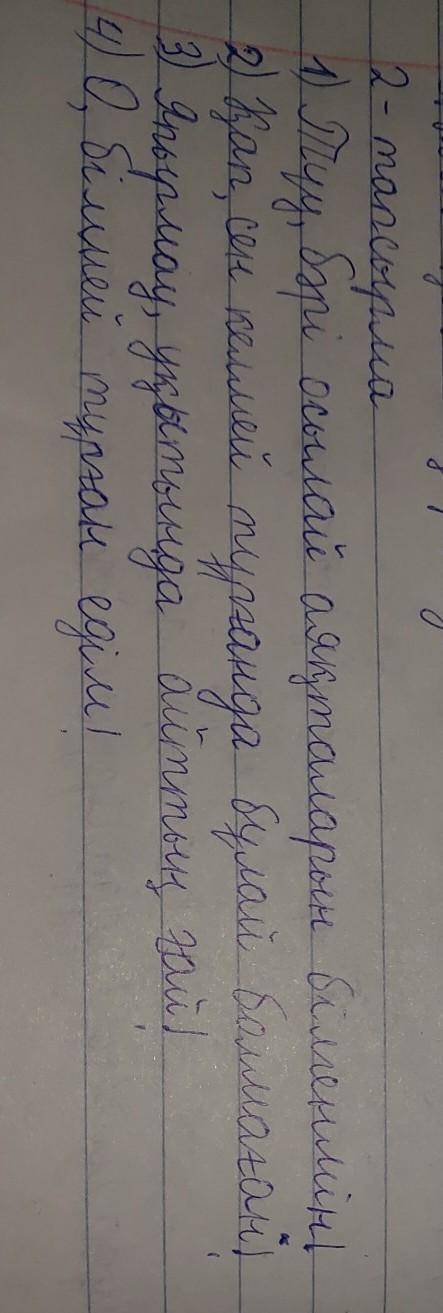 2-тапсырма
1) Туу, бәрі осылай аяқталарын білгенмін!
2) Қап, сен келмей тұрғанда бұлай болмаған!
3) Япырмау, уқытында айттың ғой!
4) О, білмей тұрған едім!